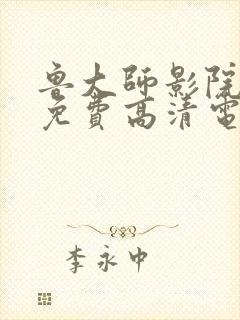 鲁大师影院
免費高清電
李永中